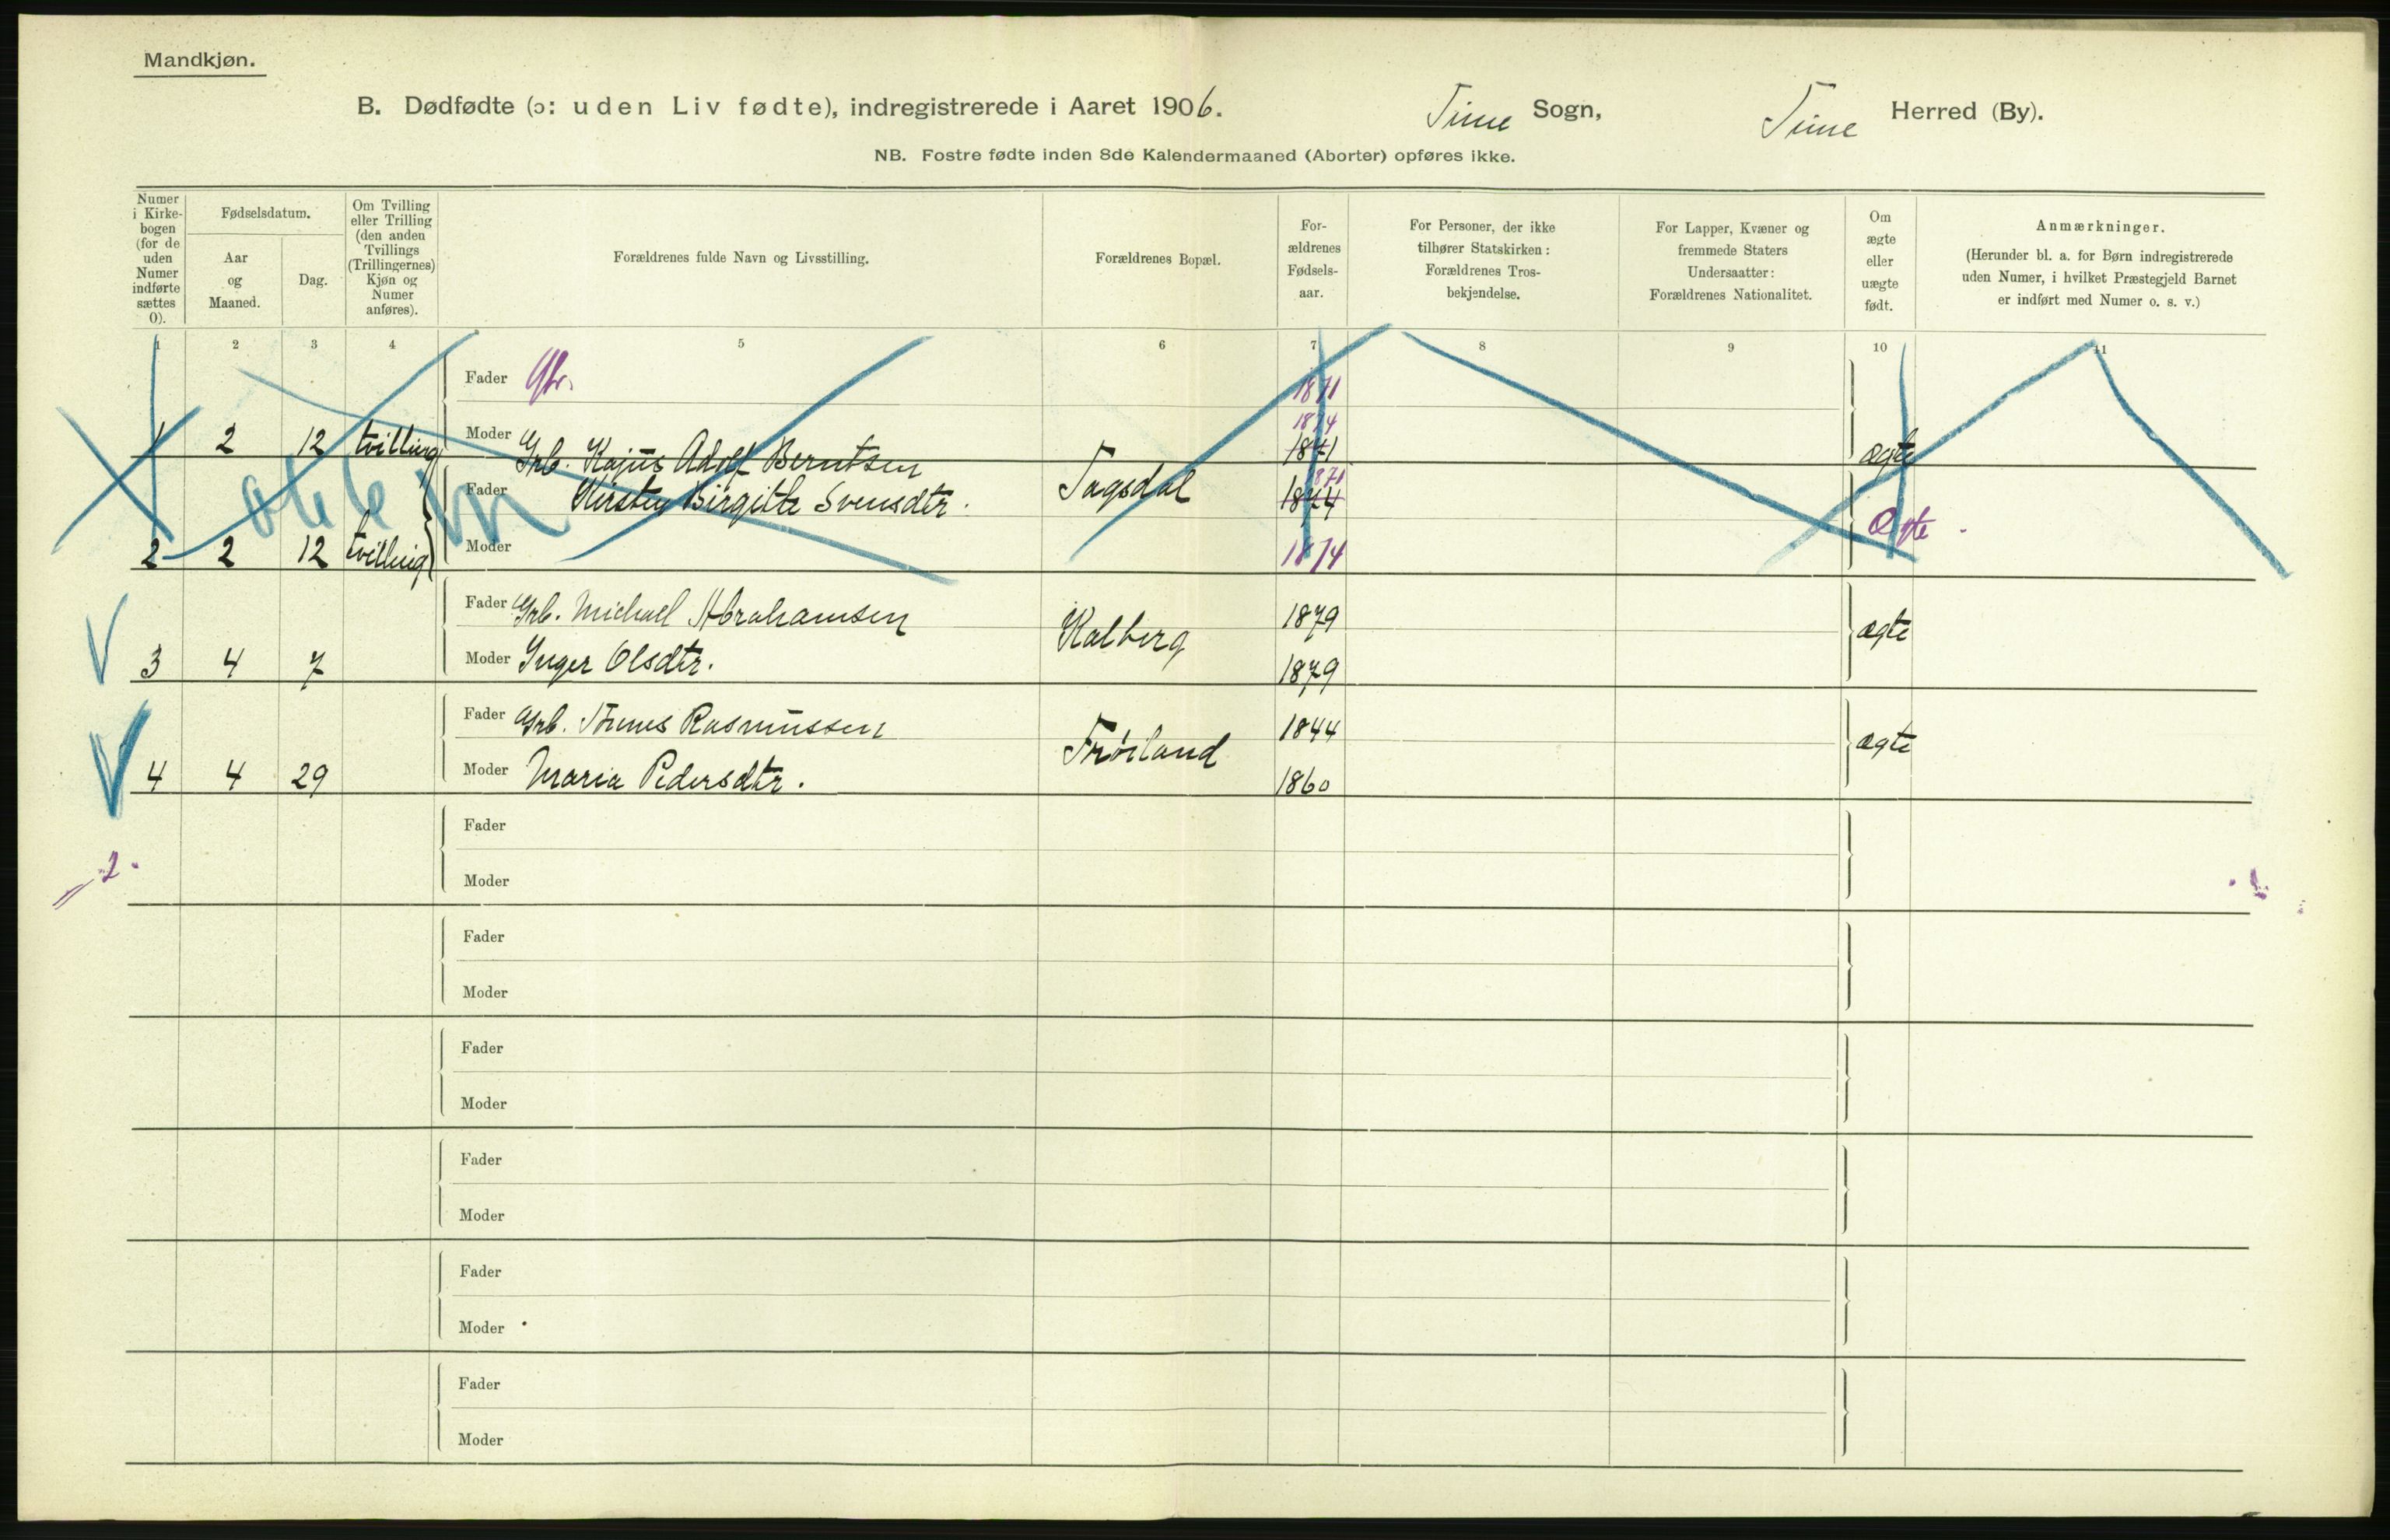 Mandkjøn.
B. Dødfødte (ɔ: uden Liv fødte), indregistrerede i Aaret 1906. Time Sogn, Time Herred (By).
NB. Fostre fødte inden 8de Kalendermaaned (Aborter) opføres ikke.
Numer i Kirkebogen (for de uden Numer indførte sættes 0).
Fødselsdatum.
Aar og Maaned.
Dag.
Om Tvilling eller Trilling (den anden Tvillings (Trillingernes) Kjøn og Numer anføres).
Forældrenes fulde Navn og Livsstilling.
Forældrenes Bopæl.
Forældrenes Fødselsaar.
For Personer, der ikke tilhører Statskirken: Forældrenes Trosbekjendelse.
For Lapper, Kvæner og fremmede Staters Undersaatter: Forældrenes Nationalitet.
Om ægte eller uægte født.
Anmærkninger.
(Herunder bl. a. for Børn indregistrerede uden Numer, i hvilket Præstegjeld Barnet er indført med Numer o. s. v.)
1 2 3 4 5 6 7 8 9 10 11
Fader 1871
1874
1 2 12 tvilling Moder Grb. Kajus Adolf Berntsen 1871 ægte
Fader Kirsten Birgitte Svensdtr. Tagsdal 1871
1874
2 2 12 tvilling Moder 1874 Ægte
Fader Grb. Michael Abrahamsen Kalberg 1879 ægte
3 4 7 Moder Inger Olsdtr. 1879
Fader Grb. Tønnes Rasmussen Frøiland 1844 ægte
4 4 29 Moder Maria Pedersdtr. 1860
Fader
2.
Moder
Fader
Moder
Fader
Moder
Fader
Moder
Fader
Moder
Fader
Moder